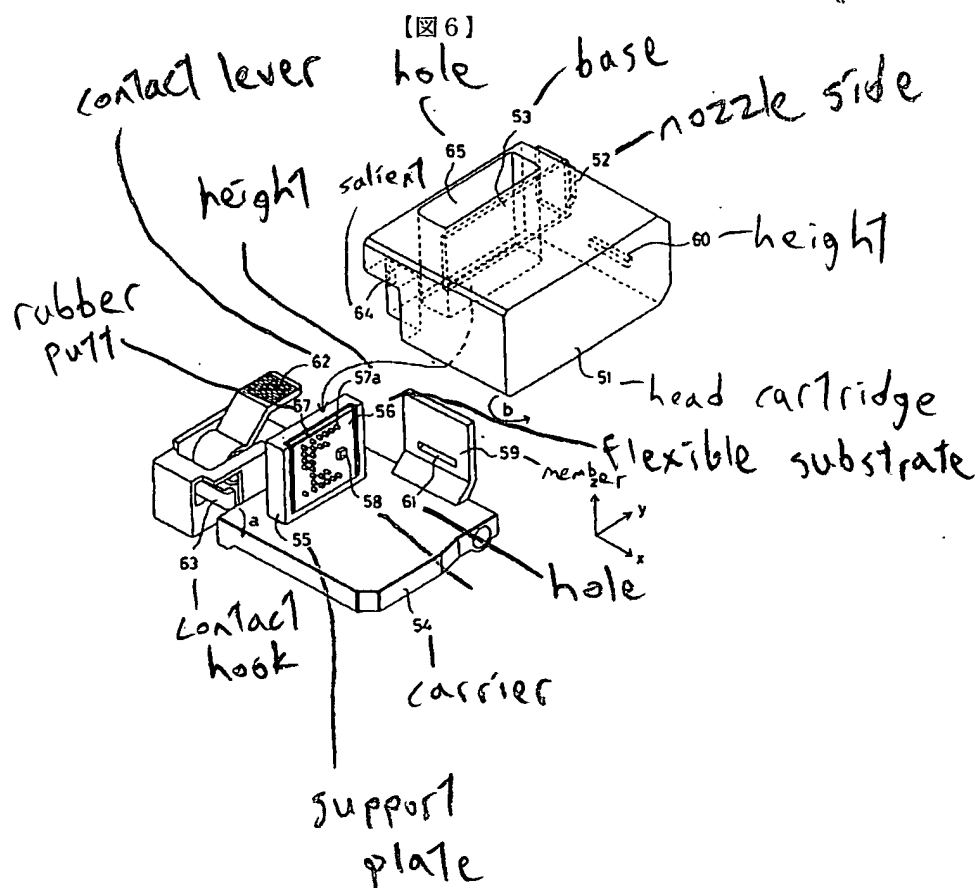 【図6】
contact lever
hole
base
nozzle side
height
salient
53
52
65
60
height
64
rubber
putt
62
57a
57
56
51
head cartridge
b
flexible substrate
59
member
z
y
x
58
61
a
55
63
hole
contact
hook
54
carrier
support
plate